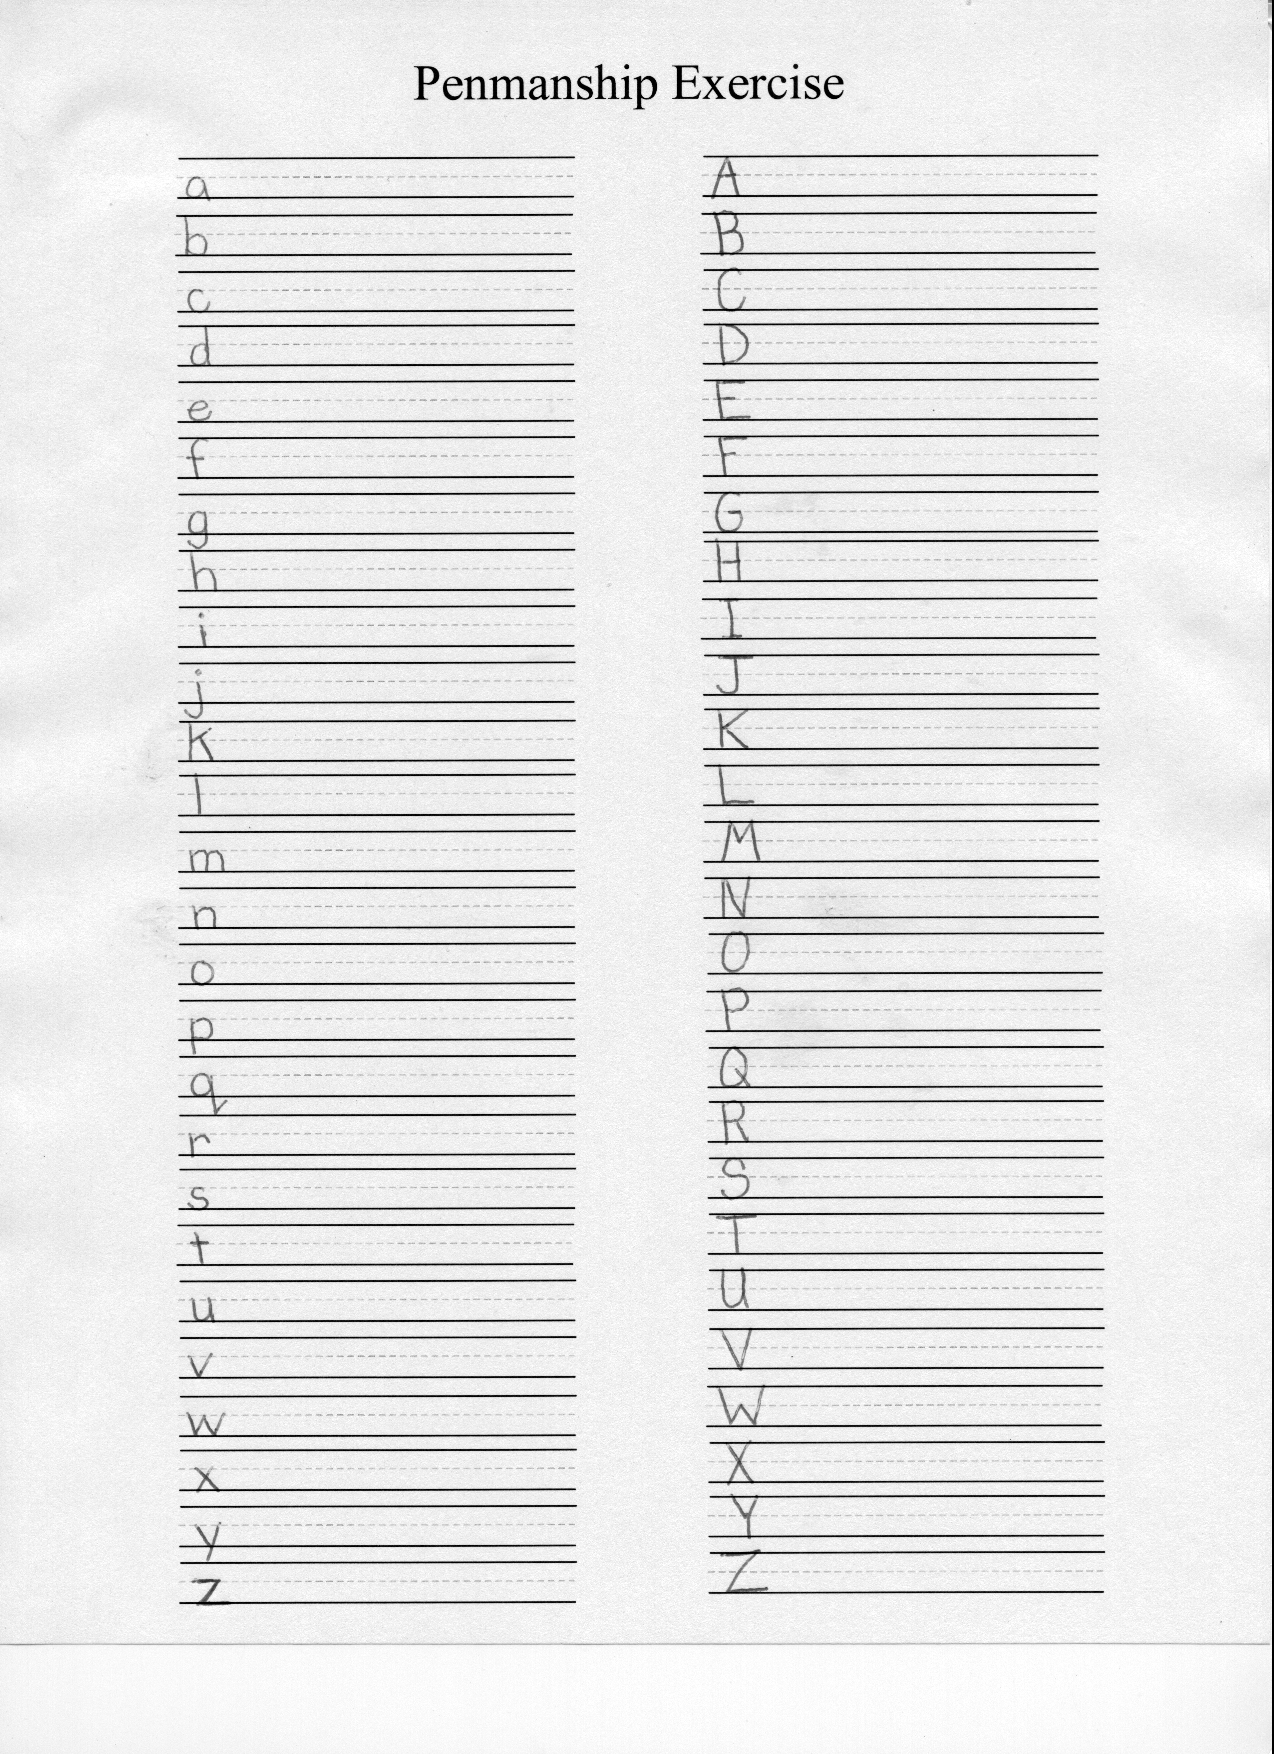 Penmanship Exercise
a
b
c
d
e
f
g
h
i
j
k
l
m
n
o
p
q
r
s
t
u
v
w
x
y
z
A
B
C
D
E
F
G
H
I
J
K
L
M
N
O
P
Q
R
S
T
U
V
W
X
Y
Z